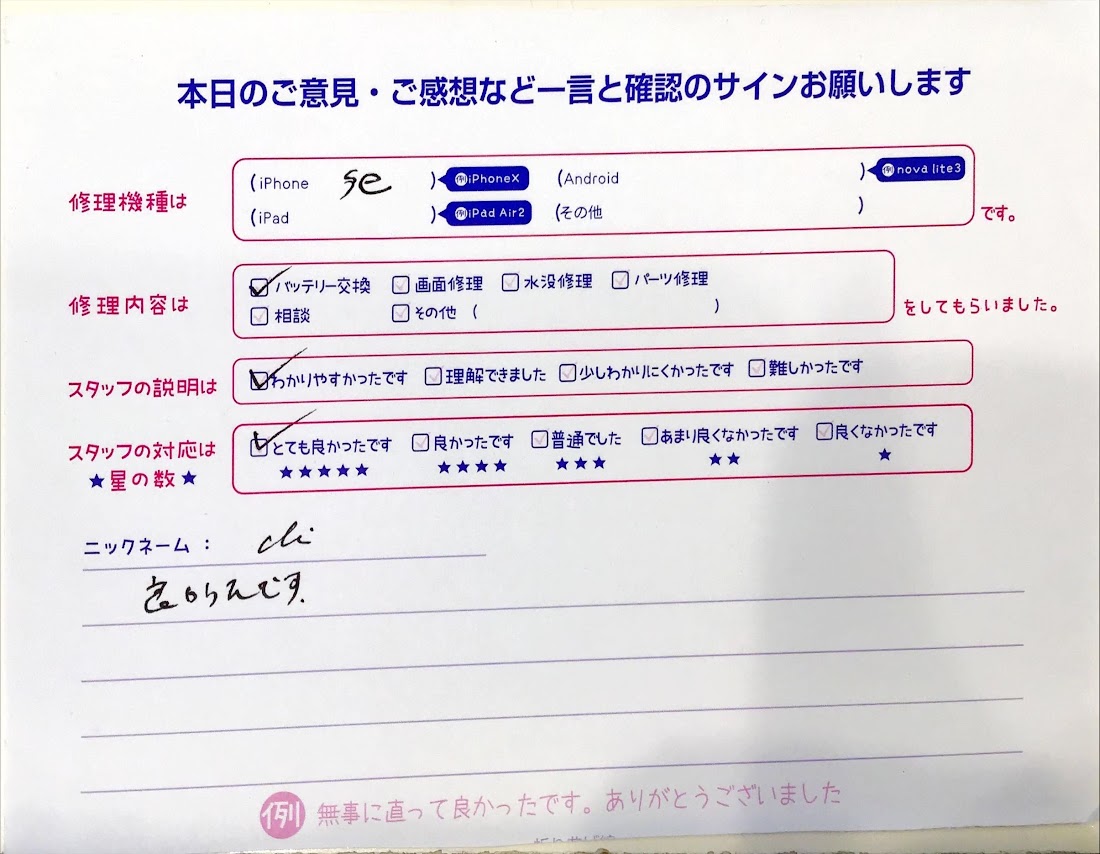 本日のご意見・ご感想など一言と確認のサインお願いします
修理機種は
(iPhone se ) 例iPhoneX (Android ) 例nova lite3
(iPad ) 例iPad Air2 (その他 ) です。
修理内容は
バッテリー交換 画面修理 水没修理 パーツ修理
相談 その他 ( ) をしてもらいました。
スタッフの説明は
わかりやすかったです 理解できました 少しわかりにくかったです 難しかったです
スタッフの対応は
とても良かったです 良かったです 普通でした あまり良くなかったです 良くなかったです
★星の数★ ★★★★★ ★★★★ ★★★ ★★ ★
ニックネーム：
です.
例 無事に直って良かったです。ありがとうございました